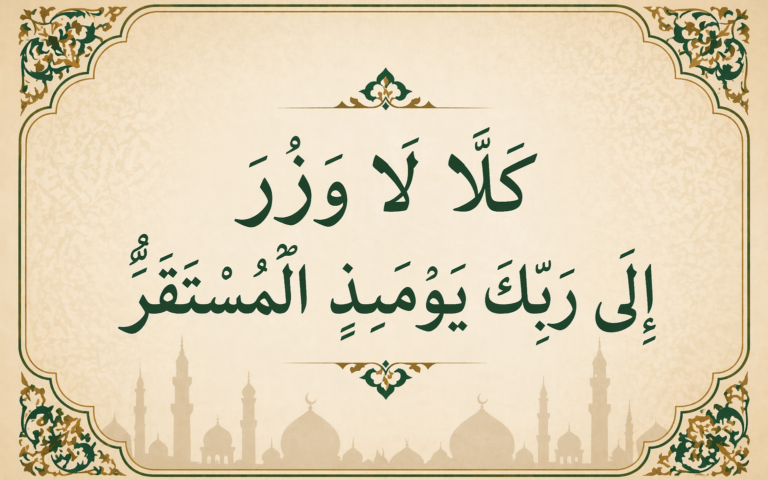 كَلَّا لَا وَزُرَ
إِلَى رَبِّكَ يَوْمَىِٕذٍ الْمُسْتَقَرُّ